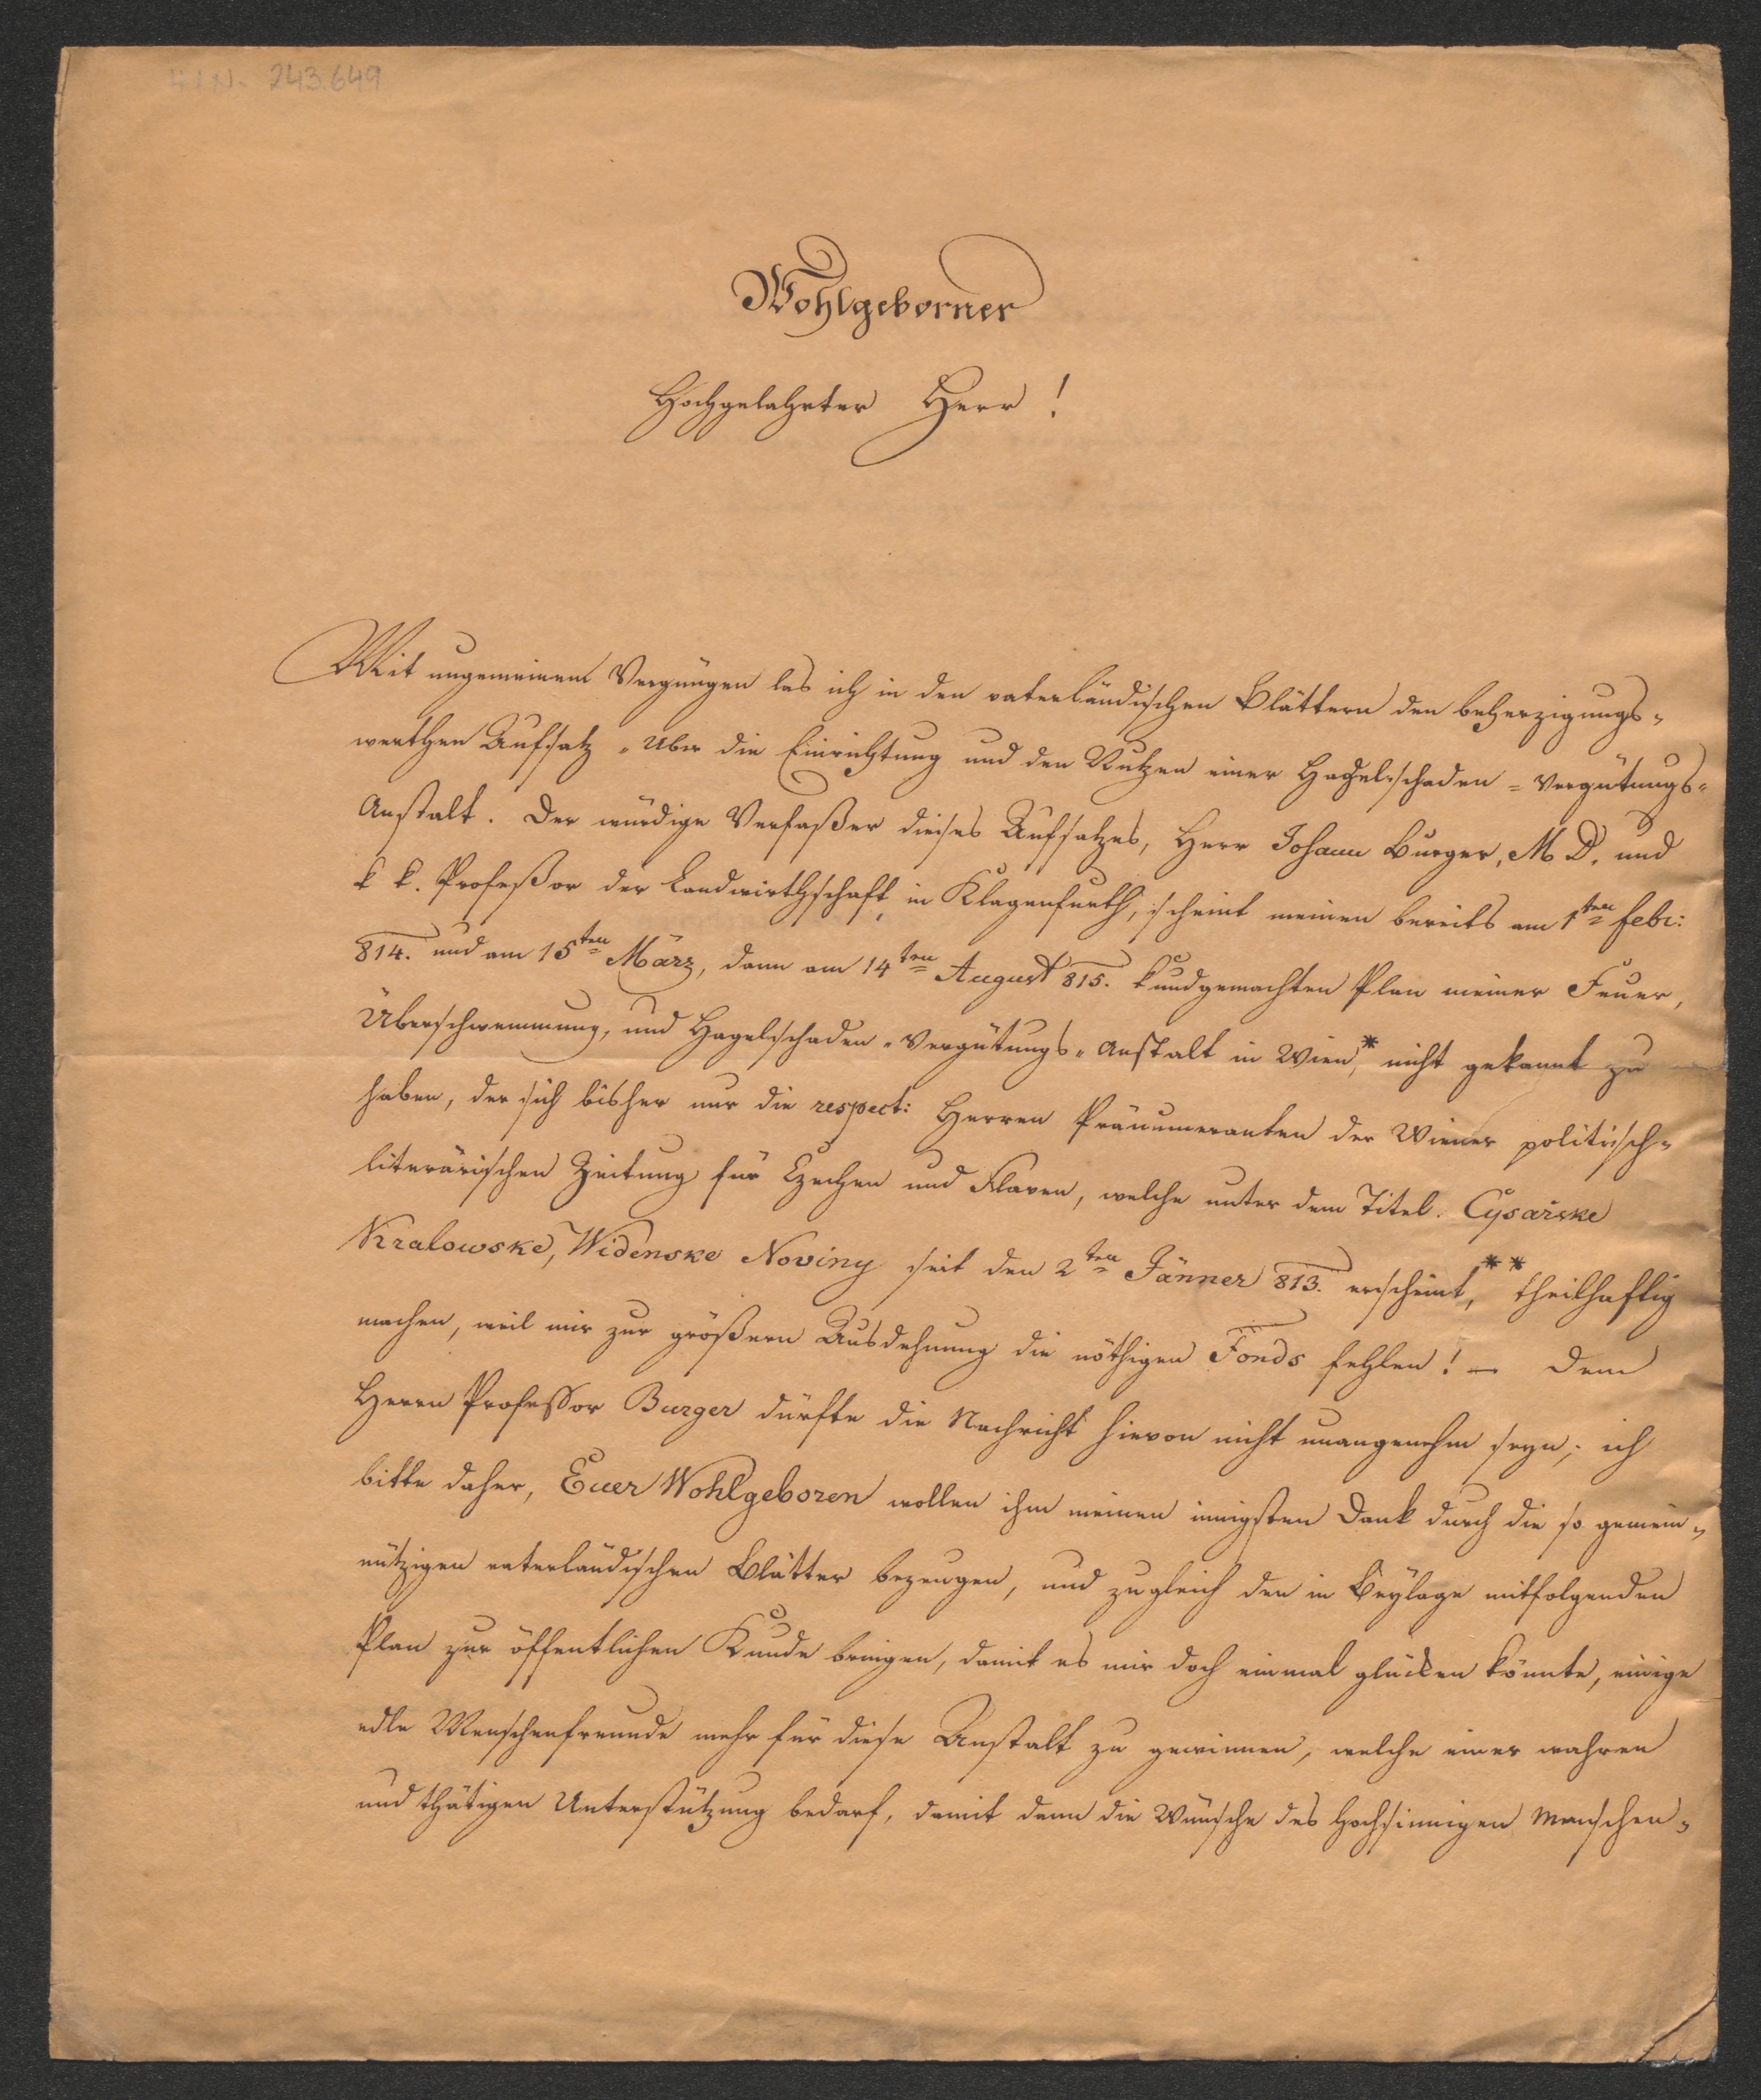 H.I.N. 243.649
Wohlgeborner
Hochgelahrter Herr!
Mit ungemeinem Vergnügen las ich in den vaterländischen Blättern den beherzigungs-
werthen Aufsatz „Über die Einrichtung und den Nutzen einer Hagelschaden = Vergütungs-
Anstalt. Der würdige Verfaßer dieses Aufsatzes, Herr Johann Burger, M D. und
k k. Profeßor der Landwirthschaft in Klagenfurth, scheint meinen bereits am 1ten Febr:
814. und am 15ten März, dann am 14ten August 815. kundgemachten Plan meiner Feuer,
Überschwemmung, und Hagelschaden-Vergütungs-Anstalt in Wien,* nicht gekannt zu
haben, der sich bisher nur die respect: Herren Pränumeranten der Wiener politisch-
literärischen Zeitung für Czechen und Slaven, welche unter dem Titel. Cysařske
Kralowske, Widenske Noviny seit den 2ten Jänner 813. erscheint,** theilhaftig
machen, weil mir zur größern Ausdehnung die nöthigen Fonds fehlen! — Dem
Herrn Professor Burger dürfte die Nachricht hievon nicht unangenehm seyn; ich
bitte daher, Euer Wohlgeboren wollen ihm meinen innigsten Dank durch die so gemein-
nützigen vaterländischen Blätter bezeugen, und zugleich den in Beylage mitfolgenden
Plan zur öffentlichen Kunde bringen, damit es mir doch einmal glücken könnte, einige
edle Menschenfreunde mehr für diese Anstalt zu gewinnen, welche einer wahren
und thätigen Unterstützung bedarf, damit dann die Wünsche des hochsinnigen Menschen-